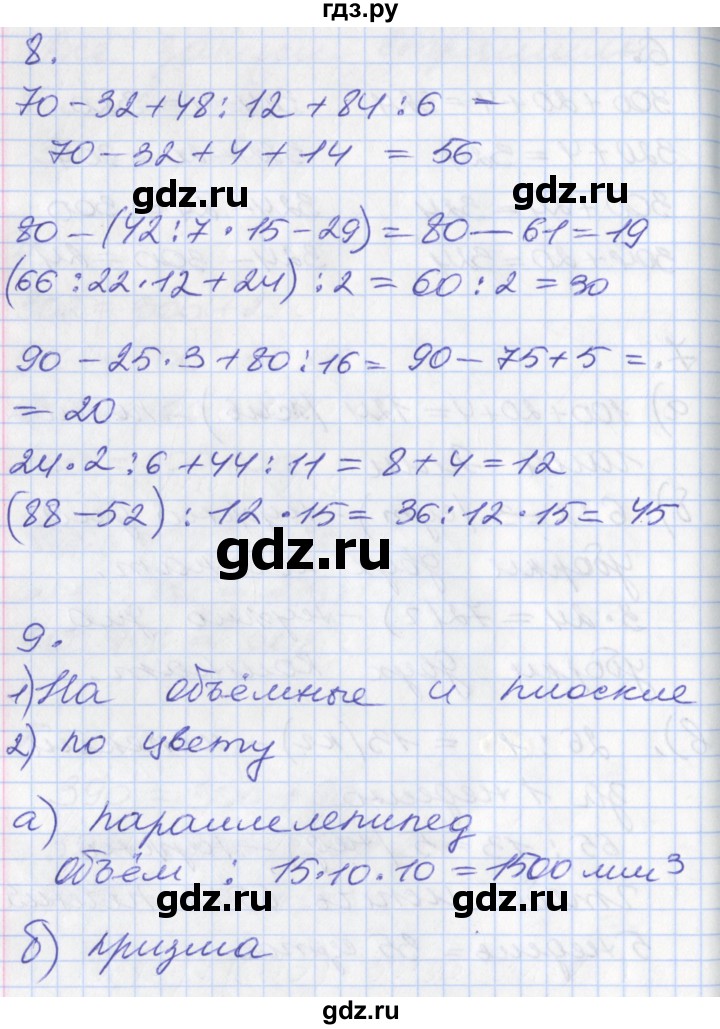 гдз.ру
8.
70-32+48:12+84:6 -
70-32+4+14 = 56
gdz.ru gdz.ru
80-(42:7·15-29)=80-61=19
(66:22·12+24):2=60:2=30
90-25·3+80:16= 90-75+5=
=20
24·2:6+44:11=8+4=12
(88-52): 12·15= 36:12·15=45
gdz.ru
9.
1) На объёмные и плоские
2) по цвету
а) параллелепипед
объём : 15·10·10=1500 мм³
gdz.ru gdz.ru
б) призма
gdz.ru